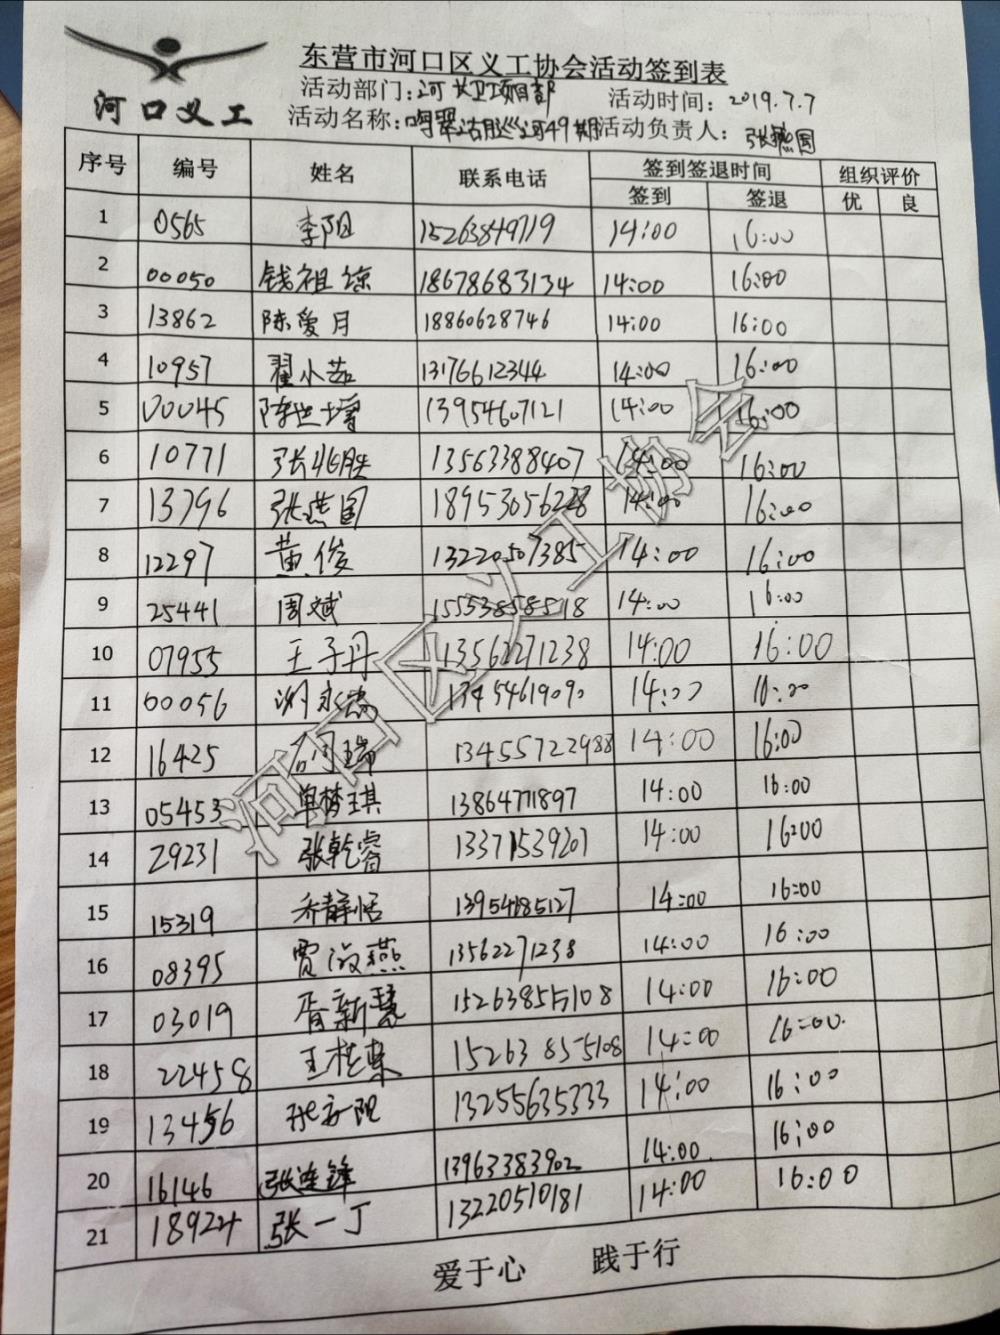 东营市河口区义工协会活动签到表
河口义工
活动部门: 河长卫项目部 活动时间: 2019.7.7
活动名称: 巡河49期 活动负责人: 张燕国
序号 编号 姓名 联系电话 签到签退时间 组织评价
签到 签退 优 良
1 0565 李阳 15263849719 14:00 16:00
2 00050 钱祖琼 18678683134 14:00 16:00
3 13862 陈爱月 18860628746 14:00 16:00
4 10957 翟小茹 13176612344 14:00 16:00
5 00045 陈世增 13954607121 14:00 16:00
6 10771 张兆胜 13563388407 14:00 16:00
7 13796 张燕国 18953656228 14:00 16:00
8 12297 黄俊 13220507385 14:00 16:00
9 25441 周斌 15553858518 14:00 16:00
10 07955 王子丹 13562271238 14:00 16:00
11 00056 谢永忠 13454619090 14:00 16:00
12 16425 13455722988 14:00 16:00
13 05453 单梦琪 13864771897 14:00 16:00
14 29231 张乾睿 13371539201 14:00 16:00
15 15319 乔静恬 13954685127 14:00 16:00
16 08395 贾淑燕 13562271238 14:00 16:00
17 03019 胥新慧 15263855108 14:00 16:00
18 22458 王桂荣 15263855108 14:00 16:00
19 13456 13255635333 14:00 16:00
20 16146 张连锋 13963383902 14:00 16:00
21 18924 张一丁 13220510181 14:00 16:00
爱于心 践于行
河口区义工协会